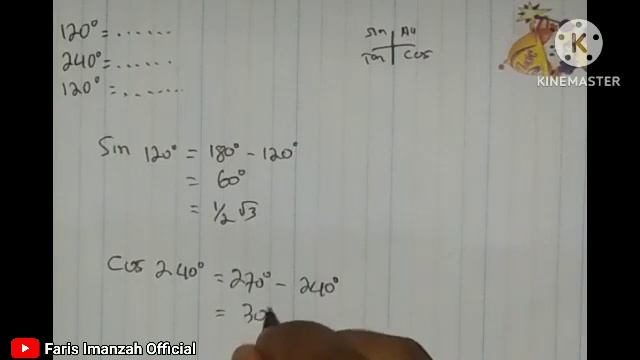 120° = ......
240° = ......
120° = ......
Sin All
Tan Cos
K
KINEMASTER
Sin 120° = 180° - 120°
= 60°
= 1/2 √3
Cos 240° = 270° - 240°
= 30
Faris Imanzah Official